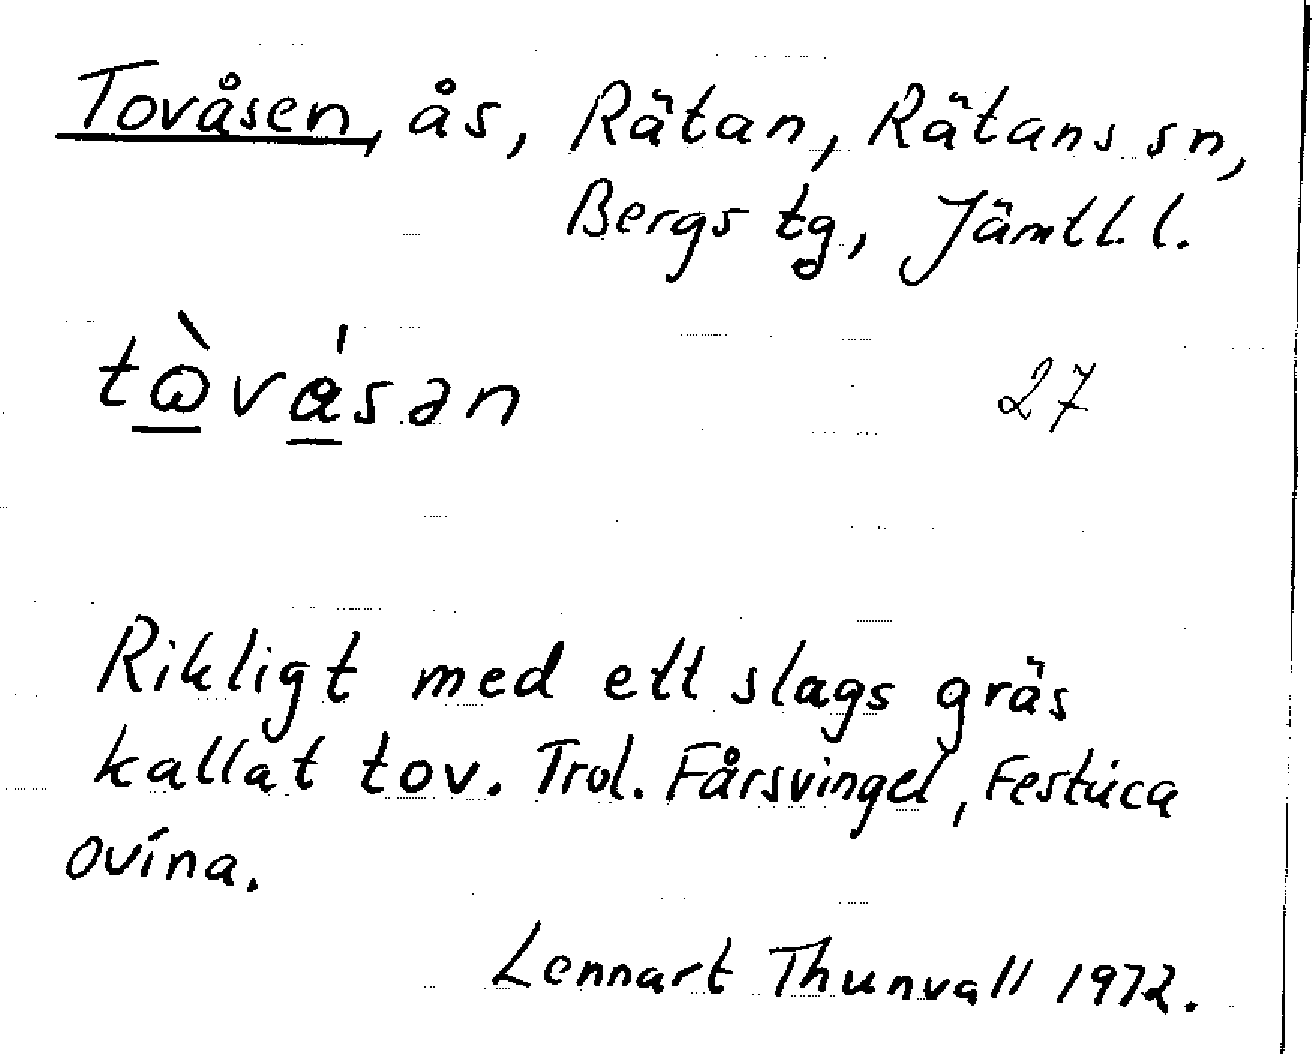 Tovåsen, ås, Rätan, Rätans sn,
Bergs tg, Jämtl. l.
27
Rikligt med ett slags gräs
kallat tov. Trol. Fårsvingel, Festúca
ovína.
Lennart Thunvall 1972.